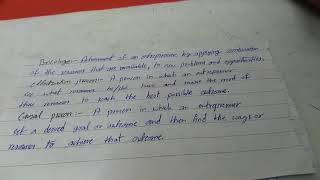 Bricolage:- Achievement of an entrepreneur by applying combination
of the resources that are available, to new problems and opportunities.
Effectuation process:- A process in which an entrepreneur
see what resources he/she have and make the most of
those resources to reach the best possible outcome.
Causal process:- A process in which an entrepreneur
set a desired goal or outcome and then find the ways or
resources to achieve that outcome.